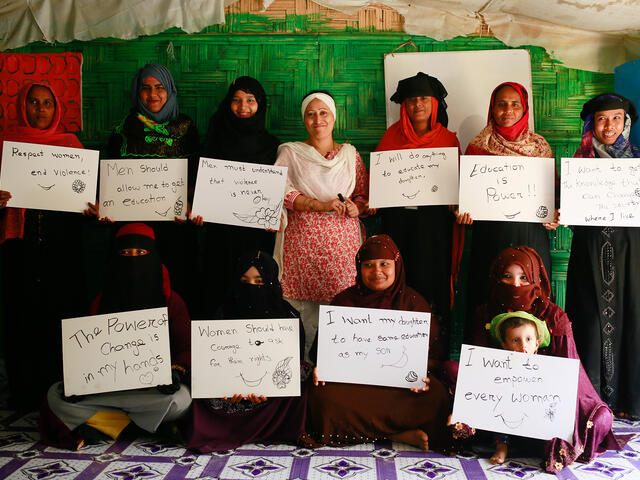 Respect women,
end violence!
Men should
allow me to get
an education
Men must understand
that violence
is never
okay
I will do anything
to educate my
daughter.
Education
is
Power!!
I want to get
The knowledge that
can change
The society
where I live
The Power of
Change is
in my hands
Women Should have
Courage to ask
for their rights
I want my daughter
to have same education
as my son
I Want to
empower
every Woman